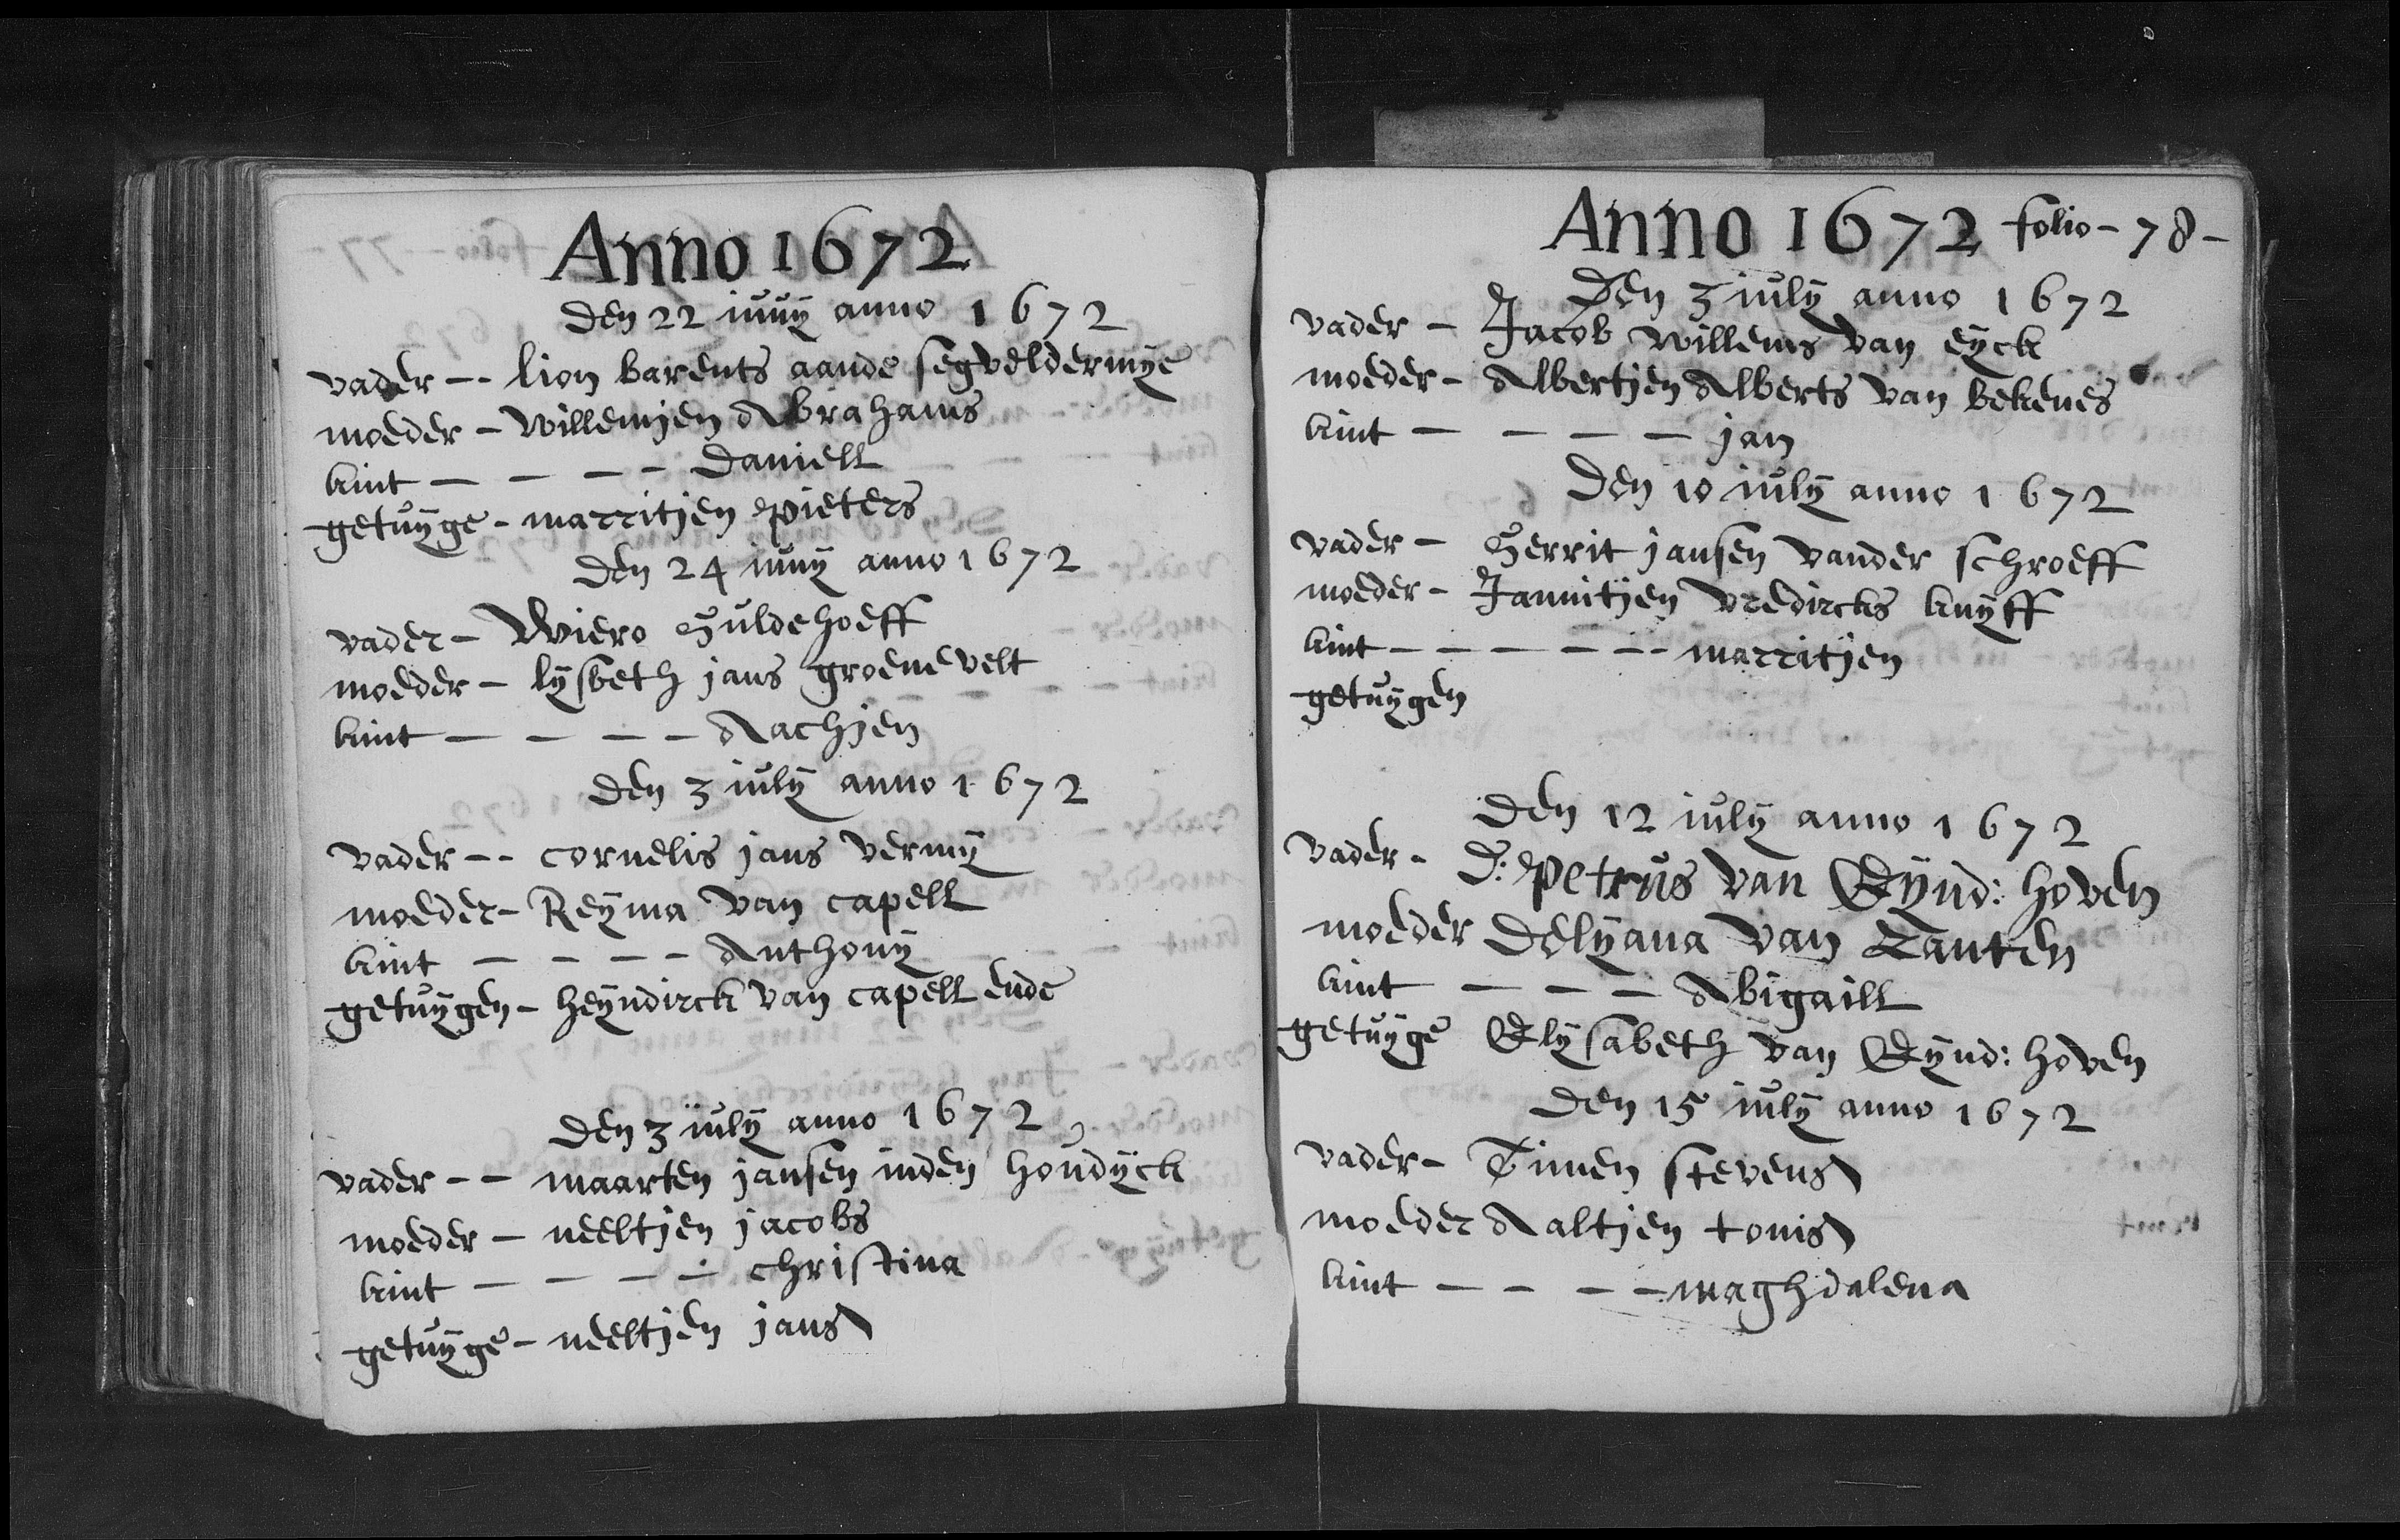 Anno 1672
den 22 iuny anno 1672
vader -- lion barents aande segveldermye
moeder - willemjen Abrahams
kint - - - - Daniell
getuyge - marritjen pieters
den 24 iuny anno 1672
vader - Wiero Guldehoeff
moeder - lysbeth jans groenevelt
kint - - - - Aachjen
den 3 iuly anno 1672
vader -- cornelis jans vermy
moeder - Reyma van capell
kint - - - - Anthony
getuygen - heyndirck van capell ende
den 3 iuly anno 1672
vader -- maarten jansen inden houdyck
moeder - neeltjen jacobs
kint - - - - christina
getuyge - neeltjen jans
Anno 1672 folio - 78 -
Den 3 iuly anno 1672
vader - Jacob willems van eyck
moeder - Albertjen Alberts van bekenes
kint - - - - jan
Den 10 iuly anno 1672
vader - Gerrit jansen vander schroeff
moeder - Jannitjen vredircks knyff
kint - - - - - - marritjen
getuygen
den 12 iuly anno 1672
vader - D: petrus van Eynd: hoven
moeder Delyana van Santen
kint - - - Abigaill
getuyge Elysabeth van Eynd: hoven
den 15 iuly anno 1672
vader - Timen stevens
moeder Aaltjen tonis
kint - - - - maghdalena